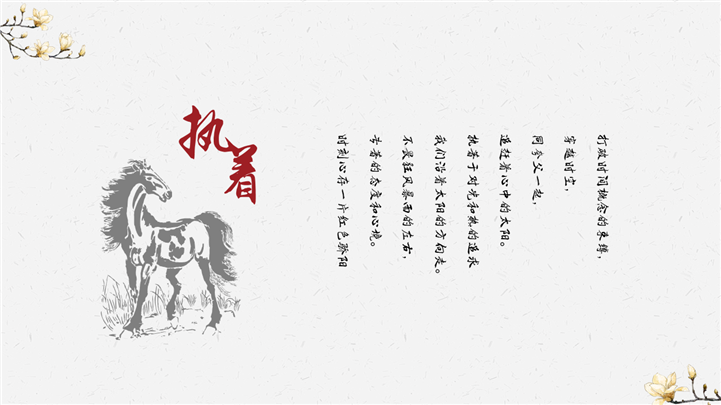 执着
打破时间概念的束缚，
穿越时空，
同夸父一起，
追赶着心中的太阳。
执著于对光和热的追求
我们沿着太阳的方向走。
不畏狂风暴雨的左右，
专著的态度和心境。
时刻心存一片红色骄阳